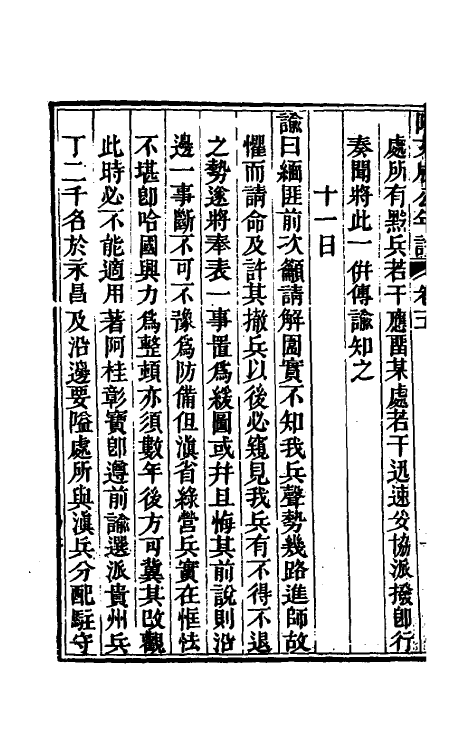 阿文成公年譜 卷五
處所有黔兵若干應畱某處若干迅速妥協派撥卽行
奏聞將此一倂傳諭知之
十一日
諭曰緬匪前次籲請解圍實不知我兵聲勢幾路進師故
懼而請命及許其撤兵以後必窺見我兵有不得不退
之勢遂將奉表一事置爲緩圖或幷且悔其前說則沿
邊一事斷不可不豫爲防備但滇省綠營兵實在恇怯
不堪卽哈國興力爲整頓亦須數年後方可冀其改觀
此時必不能適用著阿桂彰寶卽遵前諭選派貴州兵
丁二千名於永昌及沿邊要隘處所與滇兵分配駐守